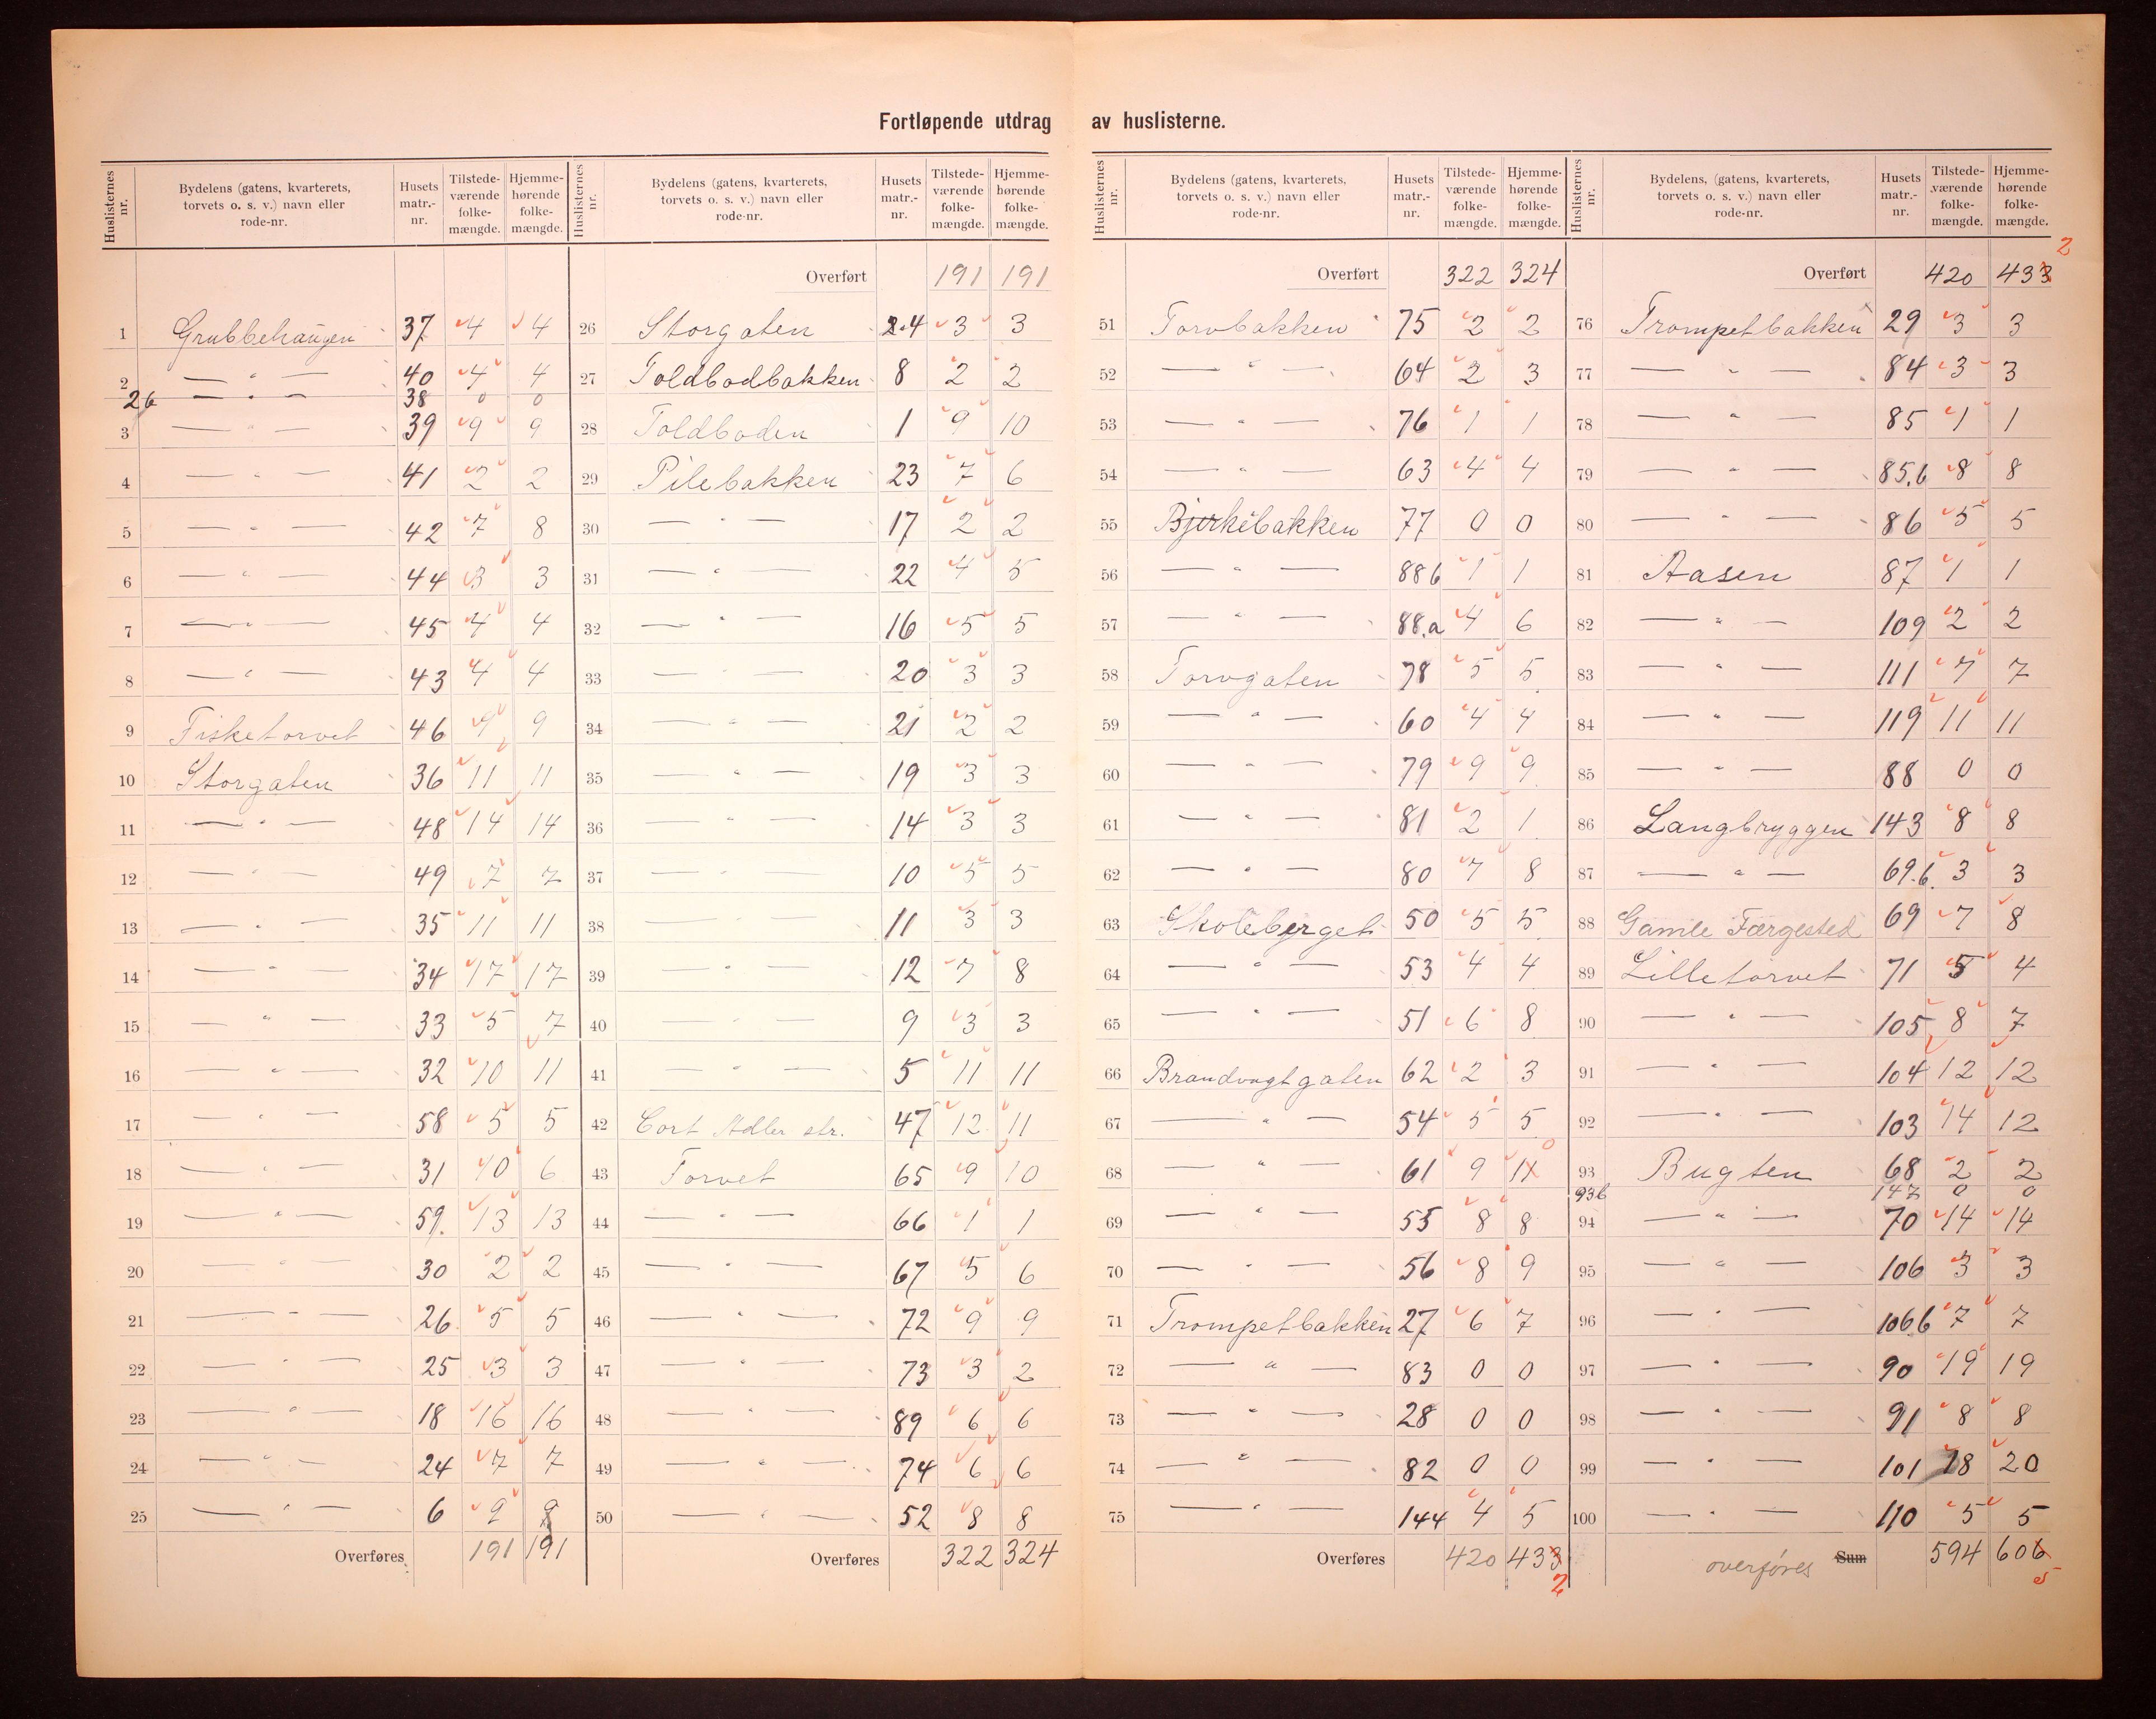 Fortløpende utdrag av huslisterne.
Huslisternes nr. | Bydelens (gatens, kvarterets, torvets o. s. v.) navn eller rode-nr. | Husets matr.-nr. | Tilstede-værende folke-mængde. | Hjemme-hørende folke-mængde.
1 Grubbehaugen 37 4 4
2 — " — 40 4 4
2 b — " — 38 0 0
3 — " — 39 9 9
4 — " — 41 2 2
5 — " — 42 7 8
6 — " — 44 3 3
7 — " — 45 4 4
8 — " — 43 4 4
9 Fisketorvet 46 9 9
10 Storgaten 36 11 11
11 — " — 48 14 14
12 — " — 49 7 7
13 — " — 35 11 11
14 — " — 34 17 17
15 — " — 33 5 7
16 — " — 32 10 11
17 — " — 58 5 5
18 — " — 31 10 6
19 — " — 59. 13 13
20 — " — 30 2 2
21 — " — 26 5 5
22 — " — 25 3 3
23 — " — 18 16 16
24 — " — 24 7 7
25 — " — 6 9 9
Overføres 191 191
Huslisternes nr. | Bydelens (gatens, kvarterets, torvets o. s. v.) navn eller rode-nr. | Husets matr.-nr. | Tilstede-værende folke-mængde. | Hjemme-hørende folke-mængde.
Overført 191 191
26 Storgaten 2.4 3 3
27 Toldbodbakken 8 2 2
28 Toldboden 1 9 10
29 Pilebakken 23 7 6
30 — " — 17 2 2
31 — " — 22 4 5
32 — " — 16 5 5
33 — " — 20 3 3
34 — " — 21 2 2
35 — " — 19 3 3
36 — " — 14 3 3
37 — " — 10 5 5
38 — " — 11 3 3
39 — " — 12 7 8
40 — " — 9 3 3
41 — " — 5 11 11
42 Cort Adler str. 47 12 11
43 Torvet 65 9 10
44 — " — 66 1 1
45 — " — 67 5 6
46 — " — 72 9 9
47 — " — 73 3 2
48 — " — 89 6 6
49 — " — 74 6 6
50 — " — 52 8 8
Overføres 322 324
Huslisternes nr. | Bydelens (gatens, kvarterets, torvets o. s. v.) navn eller rode-nr. | Husets matr.-nr. | Tilstede-værende folke-mængde. | Hjemme-hørende folke-mængde.
Overført 322 324
51 Torvbakken 75 2 2
52 — " — 64 2 3
53 — " — 76 1 1
54 — " — 63 4 4
55 Bjerkebakken 77 0 0
56 — " — 88 b 1 1
57 — " — 88.a 4 6
58 Torvgaten 78 5 5
59 — " — 60 4 4
60 — " — 79 9 9
61 — " — 81 2 1
62 — " — 80 7 8
63 Skoleberget 50 5 5
64 — " — 53 4 4
65 — " — 51 6 8
66 Brandvagtgaten 62 2 3
67 — " — 54 5 5
68 — " — 61 9 11 0
69 — " — 55 8 8
70 — " — 56 8 9
71 Trompetbakken 27 6 7
72 — " — 83 0 0
73 — " — 28 0 0
74 — " — 82 0 0
75 — " — 144 4 5
Overføres 420 433 2
Huslisternes nr. | Bydelens, (gatens, kvarterets, torvets o. s. v.) navn eller rode-nr. | Husets matr.-nr. | Tilstede-værende folke-mængde. | Hjemme-hørende folke-mængde.
Overført 420 433 2
76 Trompetbakken 29 3 3
77 — " — 84 3 3
78 — " — 85 1 1
79 — " — 85.b 8 8
80 — " — 86 5 5
81 Aasen 87 1 1
82 — " — 109 2 2
83 — " — 111 7 7
84 — " — 119 11 11
85 — " — 88 0 0
86 Langbryggen 143 8 8
87 — " — 69.b. 3 3
88 Gamle Færgested 69 7 8
89 Lilletorvet 71 5 4
90 — " — 105 8 7
91 — " — 104 12 12
92 — " — 103 14 12
93 Bugten 68 2 2
93b 147 0 0
94 — " — 70 14 14
95 — " — 106 3 3
96 — " — 106b 7 7
97 — " — 90 19 19
98 — " — 91 8 8
99 — " — 101 18 20
100 — " — 110 5 5
overføres Sum 594 606 5